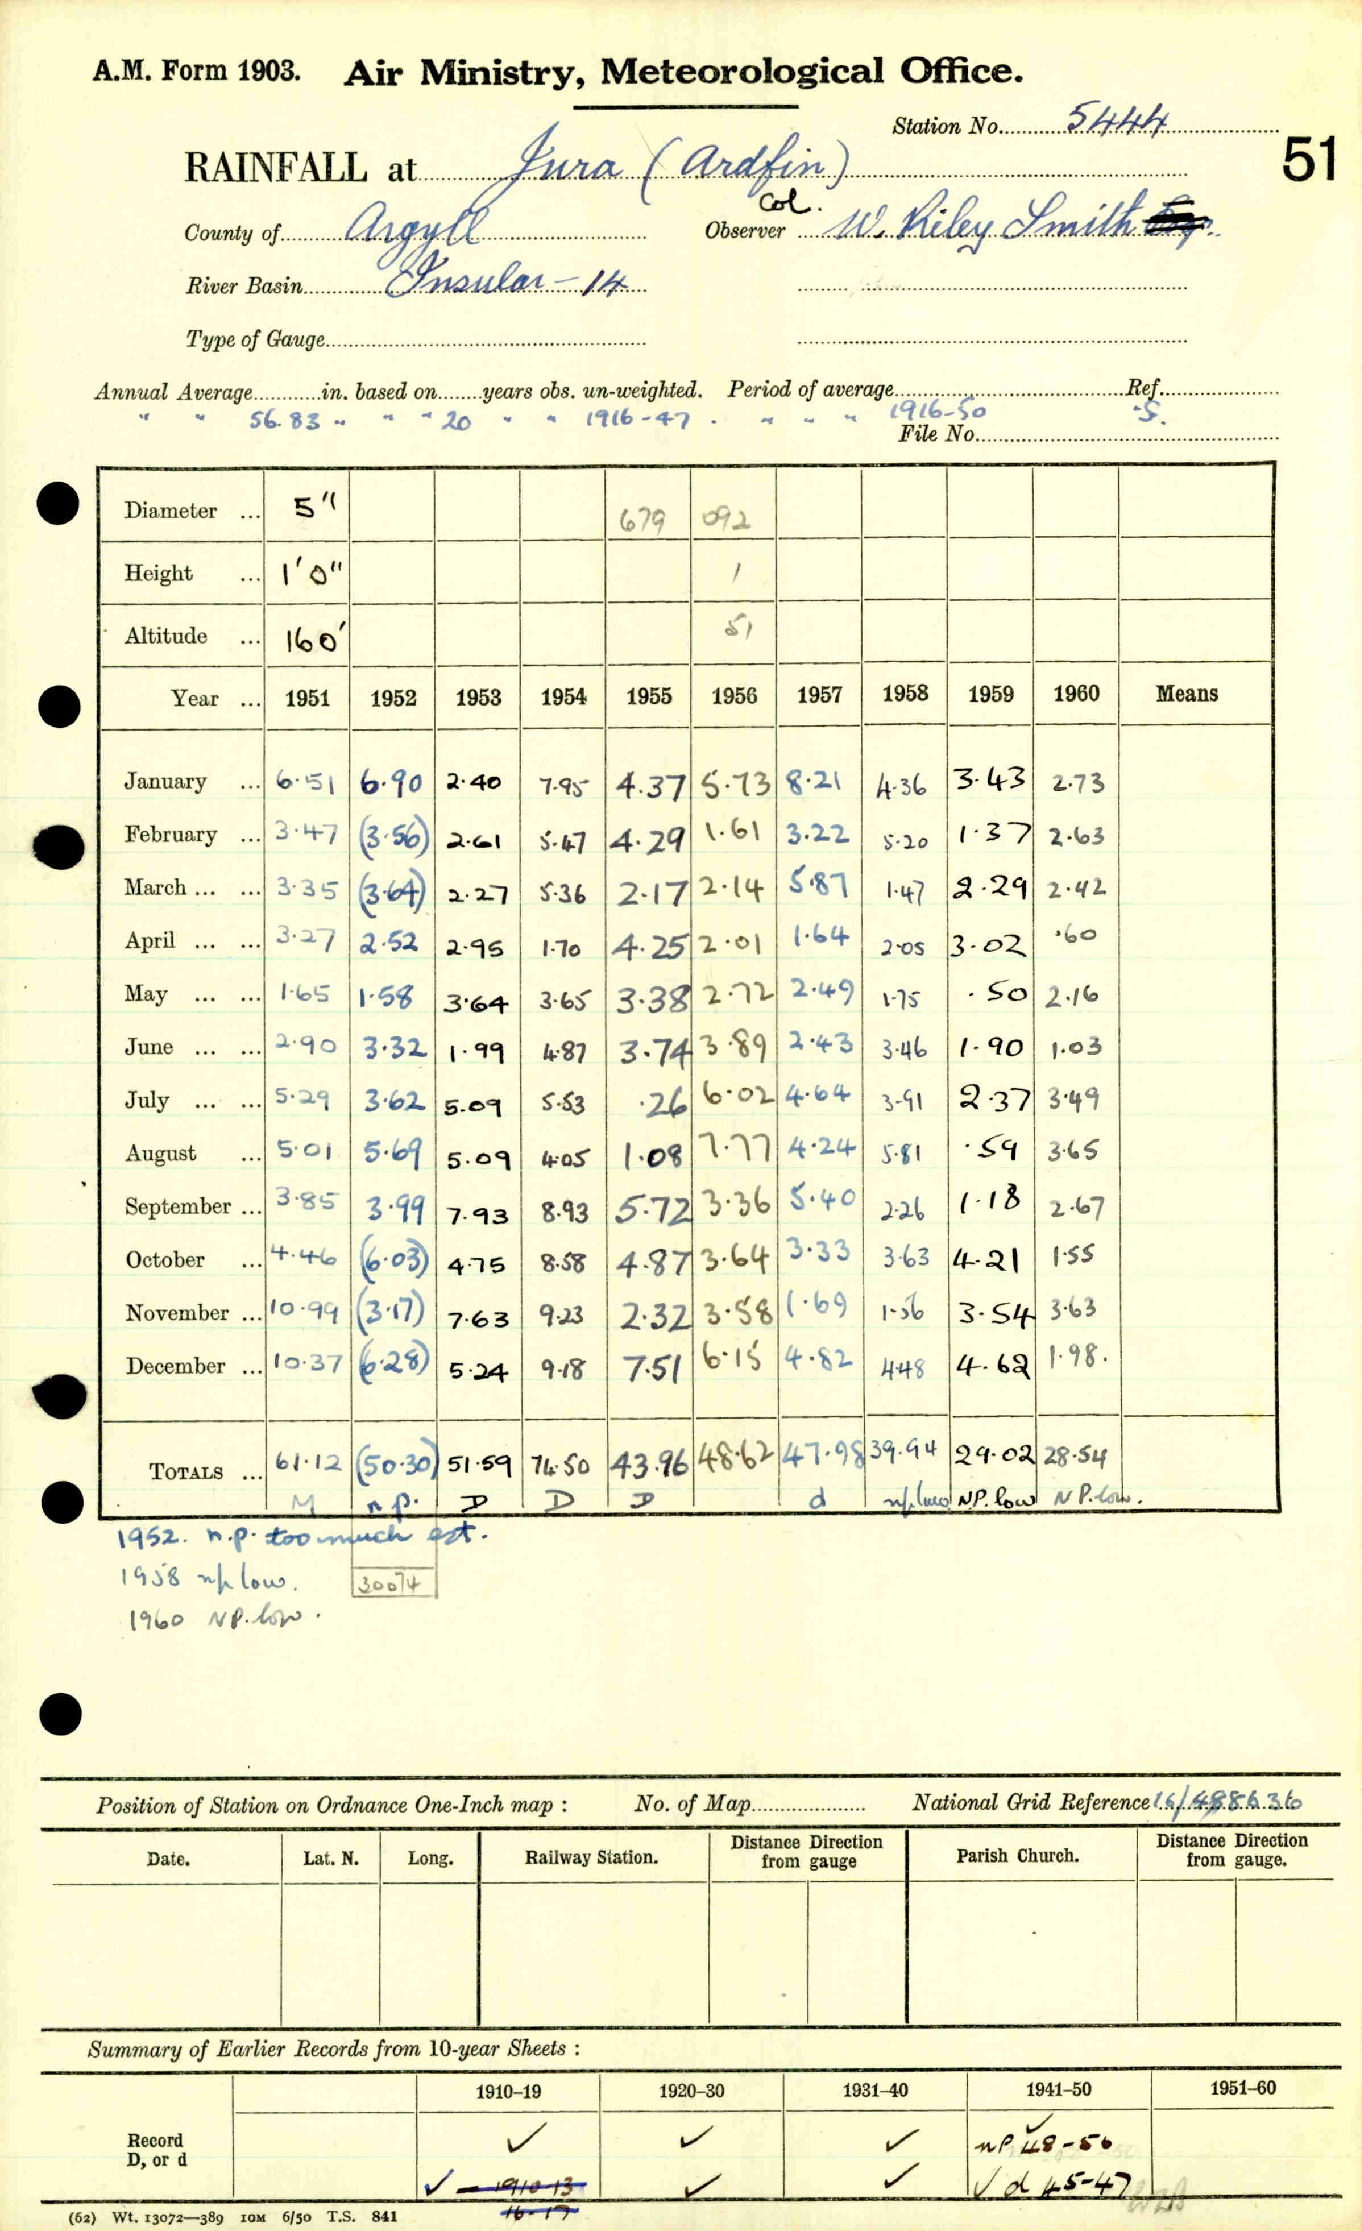 A.M. Form 1903. Air Ministry, Meteorological Office.
Station No. 5444
51
RAINFALL at Jura (Ardfin)
Col.
County of Argyll Observer W. Riley Smith
River Basin Insular - 14
Type of Gauge
Annual Average in. based on years obs. un-weighted. Period of average Ref.
" " 56.83 " " " 20 " " 1916-47 . " " " 1916-50 S.
File No.
Diameter ... 5" 679 092
Height ... 1'0" 1
Altitude ... 160' 51
Year ... 1951 1952 1953 1954 1955 1956 1957 1958 1959 1960 Means
January ... 6.51 6.90 2.40 7.95 4.37 5.73 8.21 4.36 3.43 2.73
February ... 3.47 (3.56) 2.61 5.47 4.29 1.61 3.22 5.20 1.37 2.63
March ... ... 3.35 (3.64) 2.27 5.36 2.17 2.14 5.87 1.47 2.29 2.42
April ... ... 3.27 2.52 2.95 1.70 4.25 2.01 1.64 2.05 3.02 .60
May ... ... 1.65 1.58 3.64 3.65 3.38 2.72 2.49 1.75 .50 2.16
June ... ... 2.90 3.32 1.99 4.87 3.74 3.89 2.43 3.46 1.90 1.03
July ... ... 5.29 3.62 5.09 5.53 .26 6.02 4.64 3.91 2.37 3.49
August ... 5.01 5.69 5.09 4.05 1.08 7.77 4.24 5.81 .59 3.65
September ... 3.85 3.99 7.93 8.93 5.72 3.36 5.40 2.26 1.18 2.67
October ... 4.46 (6.03) 4.75 8.58 4.87 3.64 3.33 3.63 4.21 1.55
November ... 10.99 (3.17) 7.63 9.23 2.32 3.58 1.69 1.56 3.54 3.63
December ... 10.37 (6.28) 5.24 9.18 7.51 6.15 4.82 4.48 4.62 1.98.
TOTALS ... 61.12 (50.30) 51.59 74.50 43.96 48.62 47.98 39.94 29.02 28.54
M n.p. D D D d n/p low NP. low NP. low.
1952. n.p. too much est.
1958 np low.
30074
1960 NP. low.
Position of Station on Ordnance One-Inch map : No. of Map National Grid Reference 16/488636
Date. Lat. N. Long. Railway Station. Distance from gauge Direction Parish Church. Distance from gauge. Direction
Summary of Earlier Records from 10-year Sheets :
1910–19 1920–30 1931–40 1941–50 1951–60
Record ✓ ✓ ✓ ✓ NP 48-50
D, or d ✓ - 1910-13 ✓ ✓ ✓ d 45-47
16-17
(62) Wt. 13072—389 10M 6/50 T.S. 841